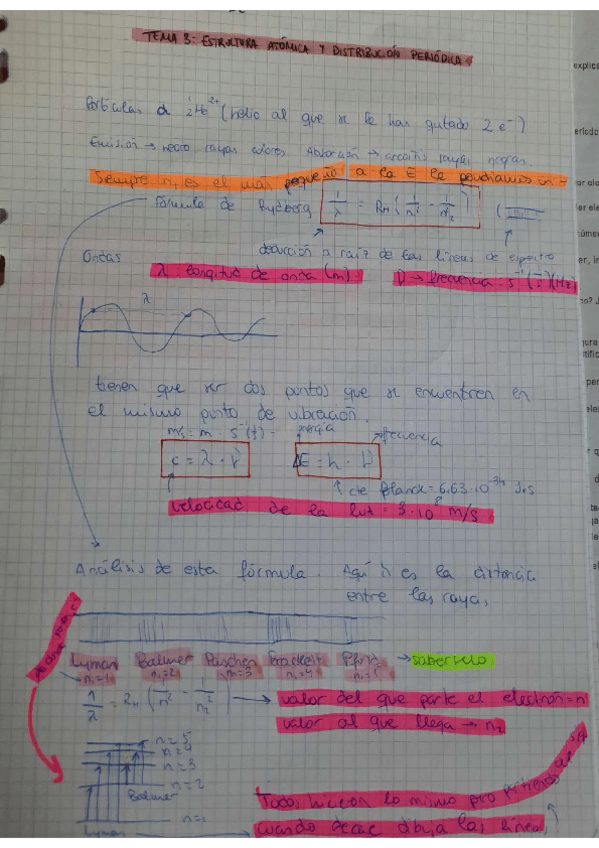 TEMA 3: ESTRUCTURA ATÓMICA Y DISTRIBUCIÓN PERIÓDICA
explica
Partículas α ₂He²⁺ (helio al que se le han quitado 2 e⁻)
Emisión → negro rayas colores Absorción → arcoiris rayas negras.
Siempre n₁ es el más pequeño a la E le pondríamos un -
Fórmula de Rydberg 1/λ = Rn (1/n₁² - 1/n₂²)
deducción a raíz de las líneas de espectro
Ondas
λ longitud de onda (m) ν → frecuencia s⁻¹ (1/s) (Hz)
λ
tienen que ser dos puntos que se encuentren en
el mismo punto de vibración.
m/s = m · s⁻¹ energía frecuencia
c = λ · ν ΔE = h · ν
cte Planck = 6,63·10⁻³⁴ J·s
velocidad de la luz = 3·10⁸ m/s
Análisis de esta fórmula. Aquí λ es la distancia
entre las rayas
Lyman Balmer Paschen Brackett Pfund → SABÉRSELO
n₁=1 n₁=2 n₁=3 n₁=4 n₁=5
1/λ = Rn (1/n² - 1/n₂²) → valor del que parte el electrón = n
valor al que llega → n₂
n=5
n=4
n=3
n=2
Balmer
n=1
Lyman
Todos hicieron lo mismo pero
cuando decae dibuja las líneas